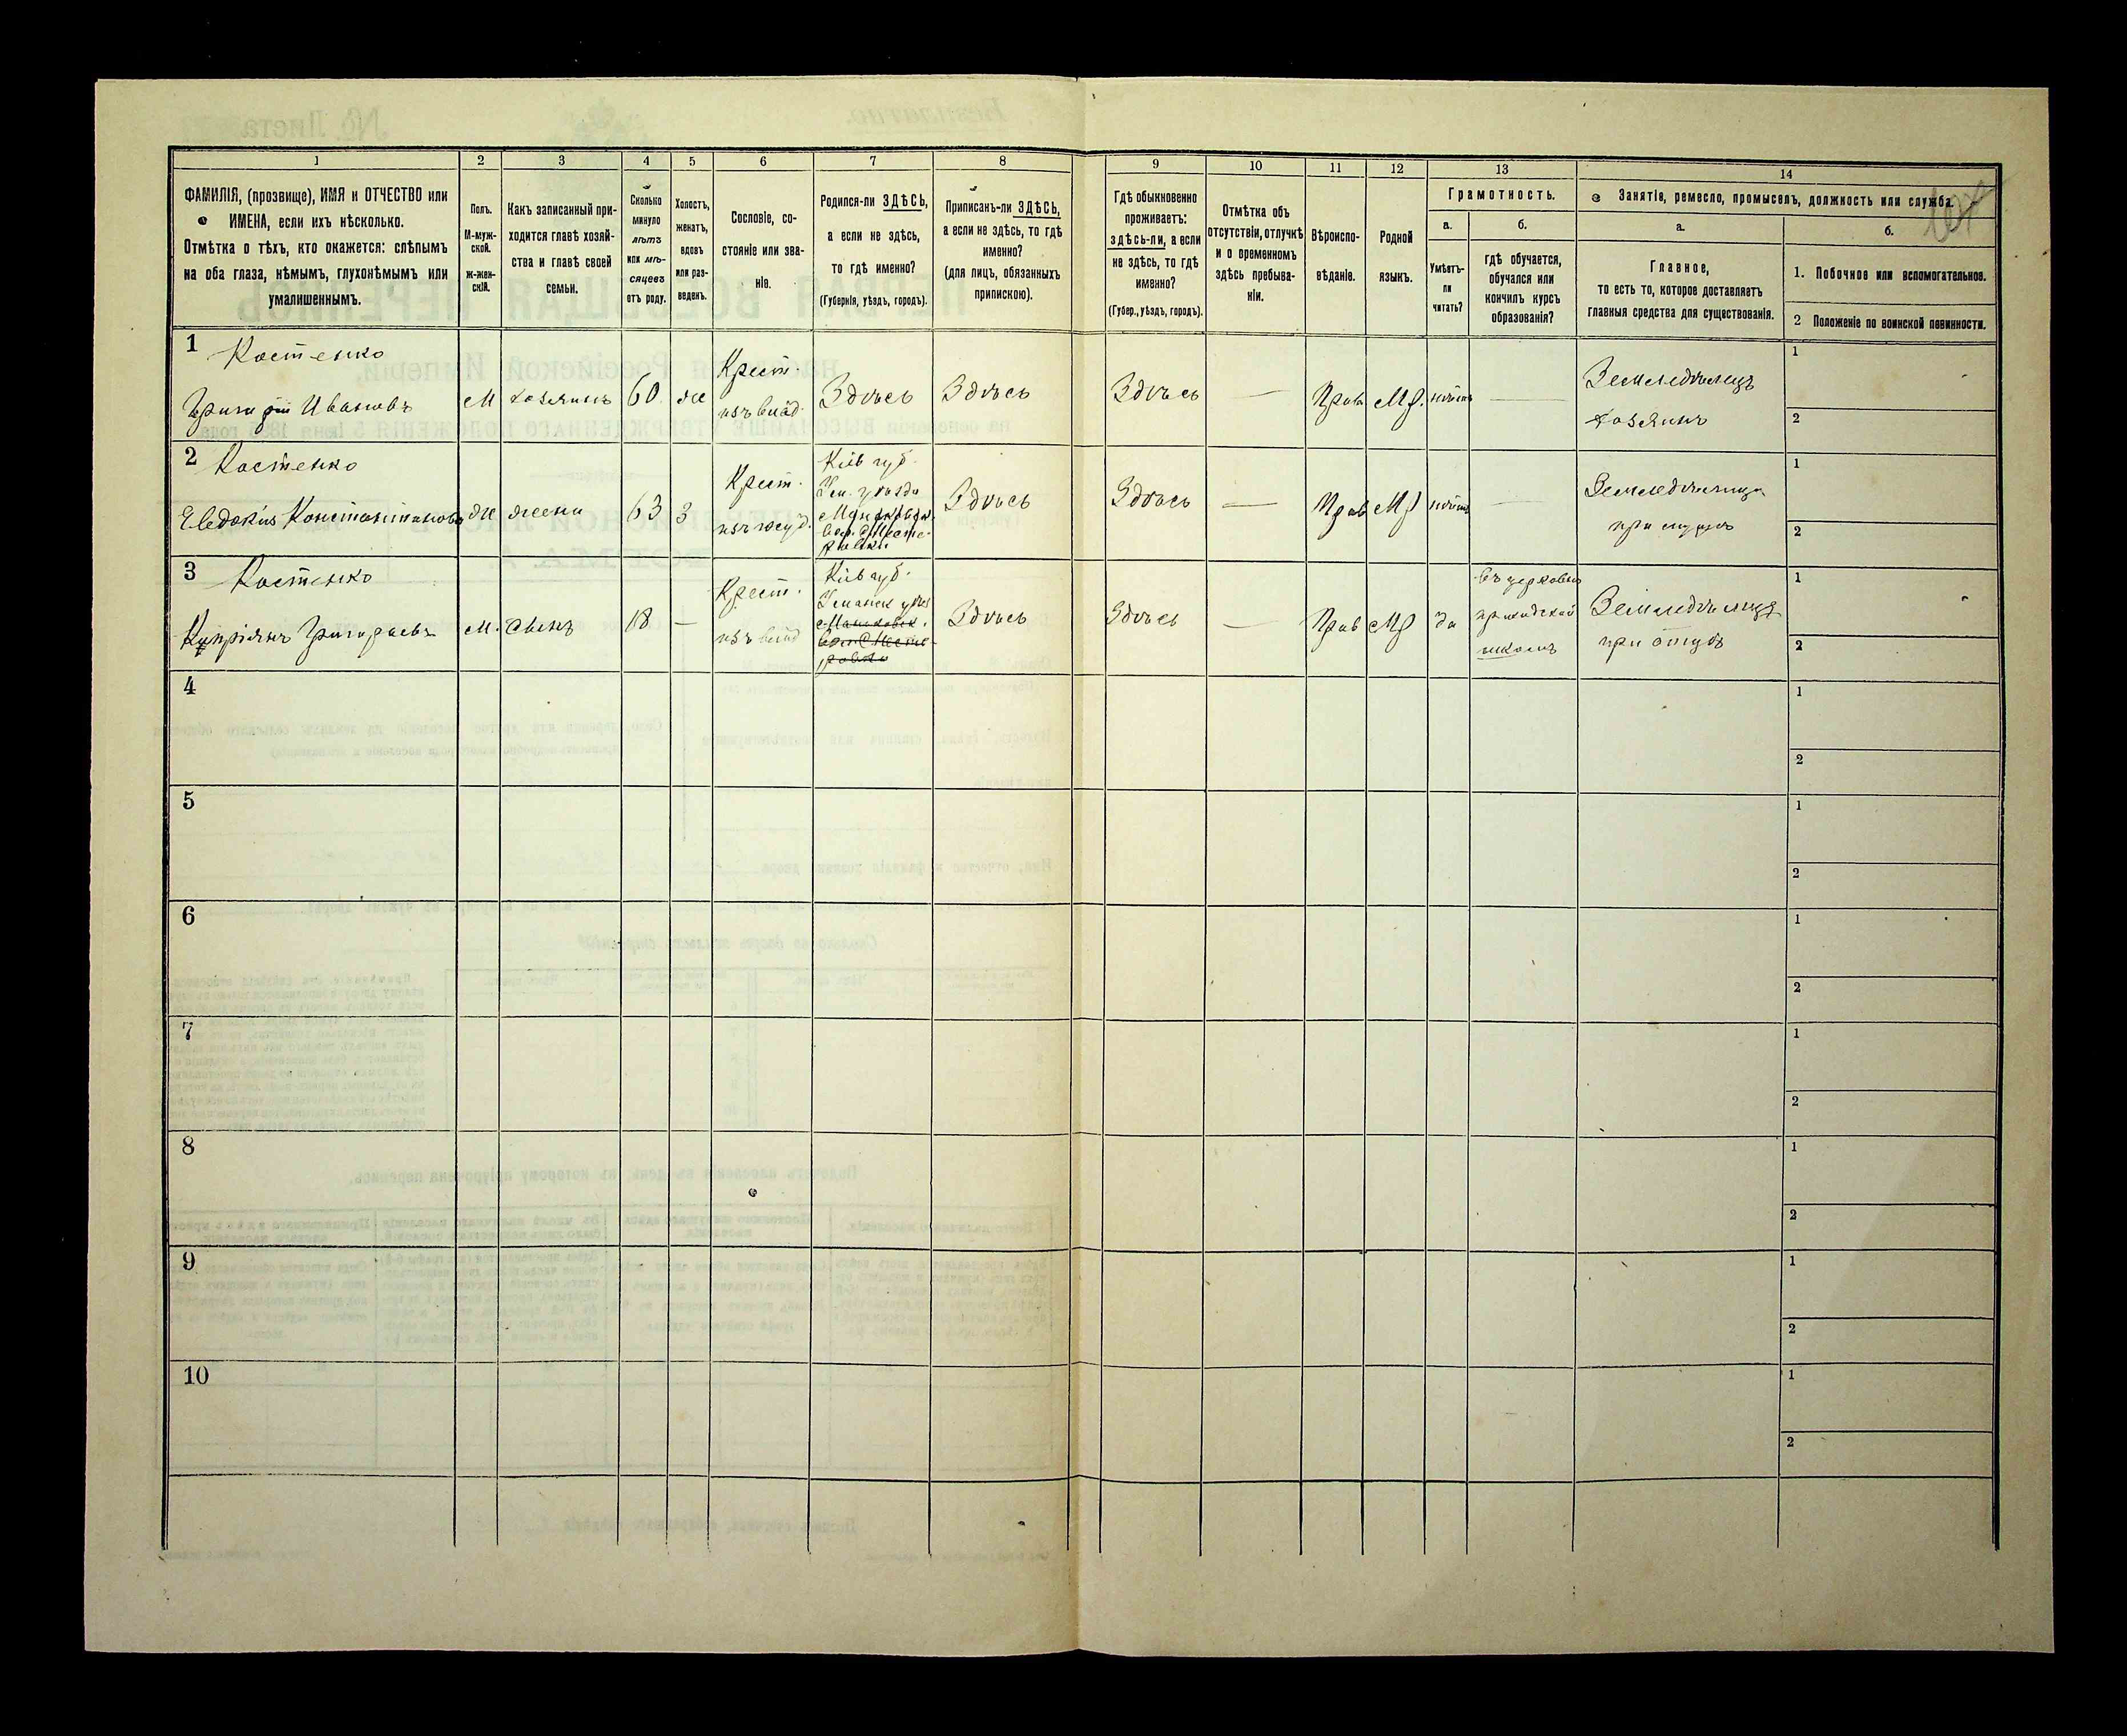 1 2 3 4 5 6 7 8 9 10 11 12 13 14
ФАМИЛІЯ, (прозвище), ИМЯ и ОТЧЕСТВО или
ИМЕНА, если ихъ нѣсколько.
Отмѣтка о тѣхъ, кто окажется: слѣпымъ
на оба глаза, нѣмымъ, глухонѣмымъ или
умалишеннымъ.
Полъ.
М-муж-
ской.
Ж-жен-
скій.
Какъ записанный при-
ходится главѣ хозяй-
ства и главѣ своей
семьи.
Сколько
минуло
лѣтъ
или мѣ-
сяцевъ
отъ роду.
Холостъ,
женатъ,
вдовъ
или раз-
веденъ.
Сословіе, со-
стояніе или зва-
ніе.
Родился-ли ЗДѢСЬ,
а если не здѣсь,
то гдѣ именно?
(Губернія, уѣздъ, городъ).
Приписанъ-ли ЗДѢСЬ,
а если не здѣсь, то гдѣ
именно?
(для лицъ, обязанныхъ
припискою).
Гдѣ обыкновенно
проживаетъ:
здѣсь-ли, а если
не здѣсь, то гдѣ
именно?
(Губер., уѣздъ, городъ).
Отмѣтка объ
отсутствіи, отлучкѣ
и о временномъ
здѣсь пребыва-
ніи.
Вѣроиспо-
вѣданіе.
Родной
языкъ.
Грамотность.
а.
Умѣетъ-
ли
читать?
б.
гдѣ обучается,
обучался или
кончилъ курсъ
образованія?
Занятіе, ремесло, промыселъ, должность или служба.
а.
Главное,
то есть то, которое доставляетъ
главныя средства для существованія.
б.
1. Побочное или вспомогательное.
2 Положеніе по воинской повинности.
1 Костенко
Григорій Ивановъ
М
хозяинъ
60
же
Крест.
изъ влад.
Здѣсь
Здѣсь
Здѣсь
—
Прав
Мр.
нѣтъ
—
Земледѣлецъ
хозяинъ
1
2
2 Костенко
Евдокія Константинова
Же
жена
63
З
Крест.
Кіев губ.
Ум. уѣзда
Здѣсь
Здѣсь
—
Прав
Мр
нѣтъ
—
Земледѣлица
при мужѣ
1
2
3 Костенко
Кипріянъ Григорьевъ
М.
сынъ
18
—
Крест.
изъ влад
Кіев губ.
Здѣсь
Здѣсь
—
Прав
Мр
да
въ церковно
приходской
школѣ
Земледѣлецъ
при отцѣ
1
2
4
1
2
5
1
2
6
1
2
7
1
2
8
1
2
9
1
2
10
1
2